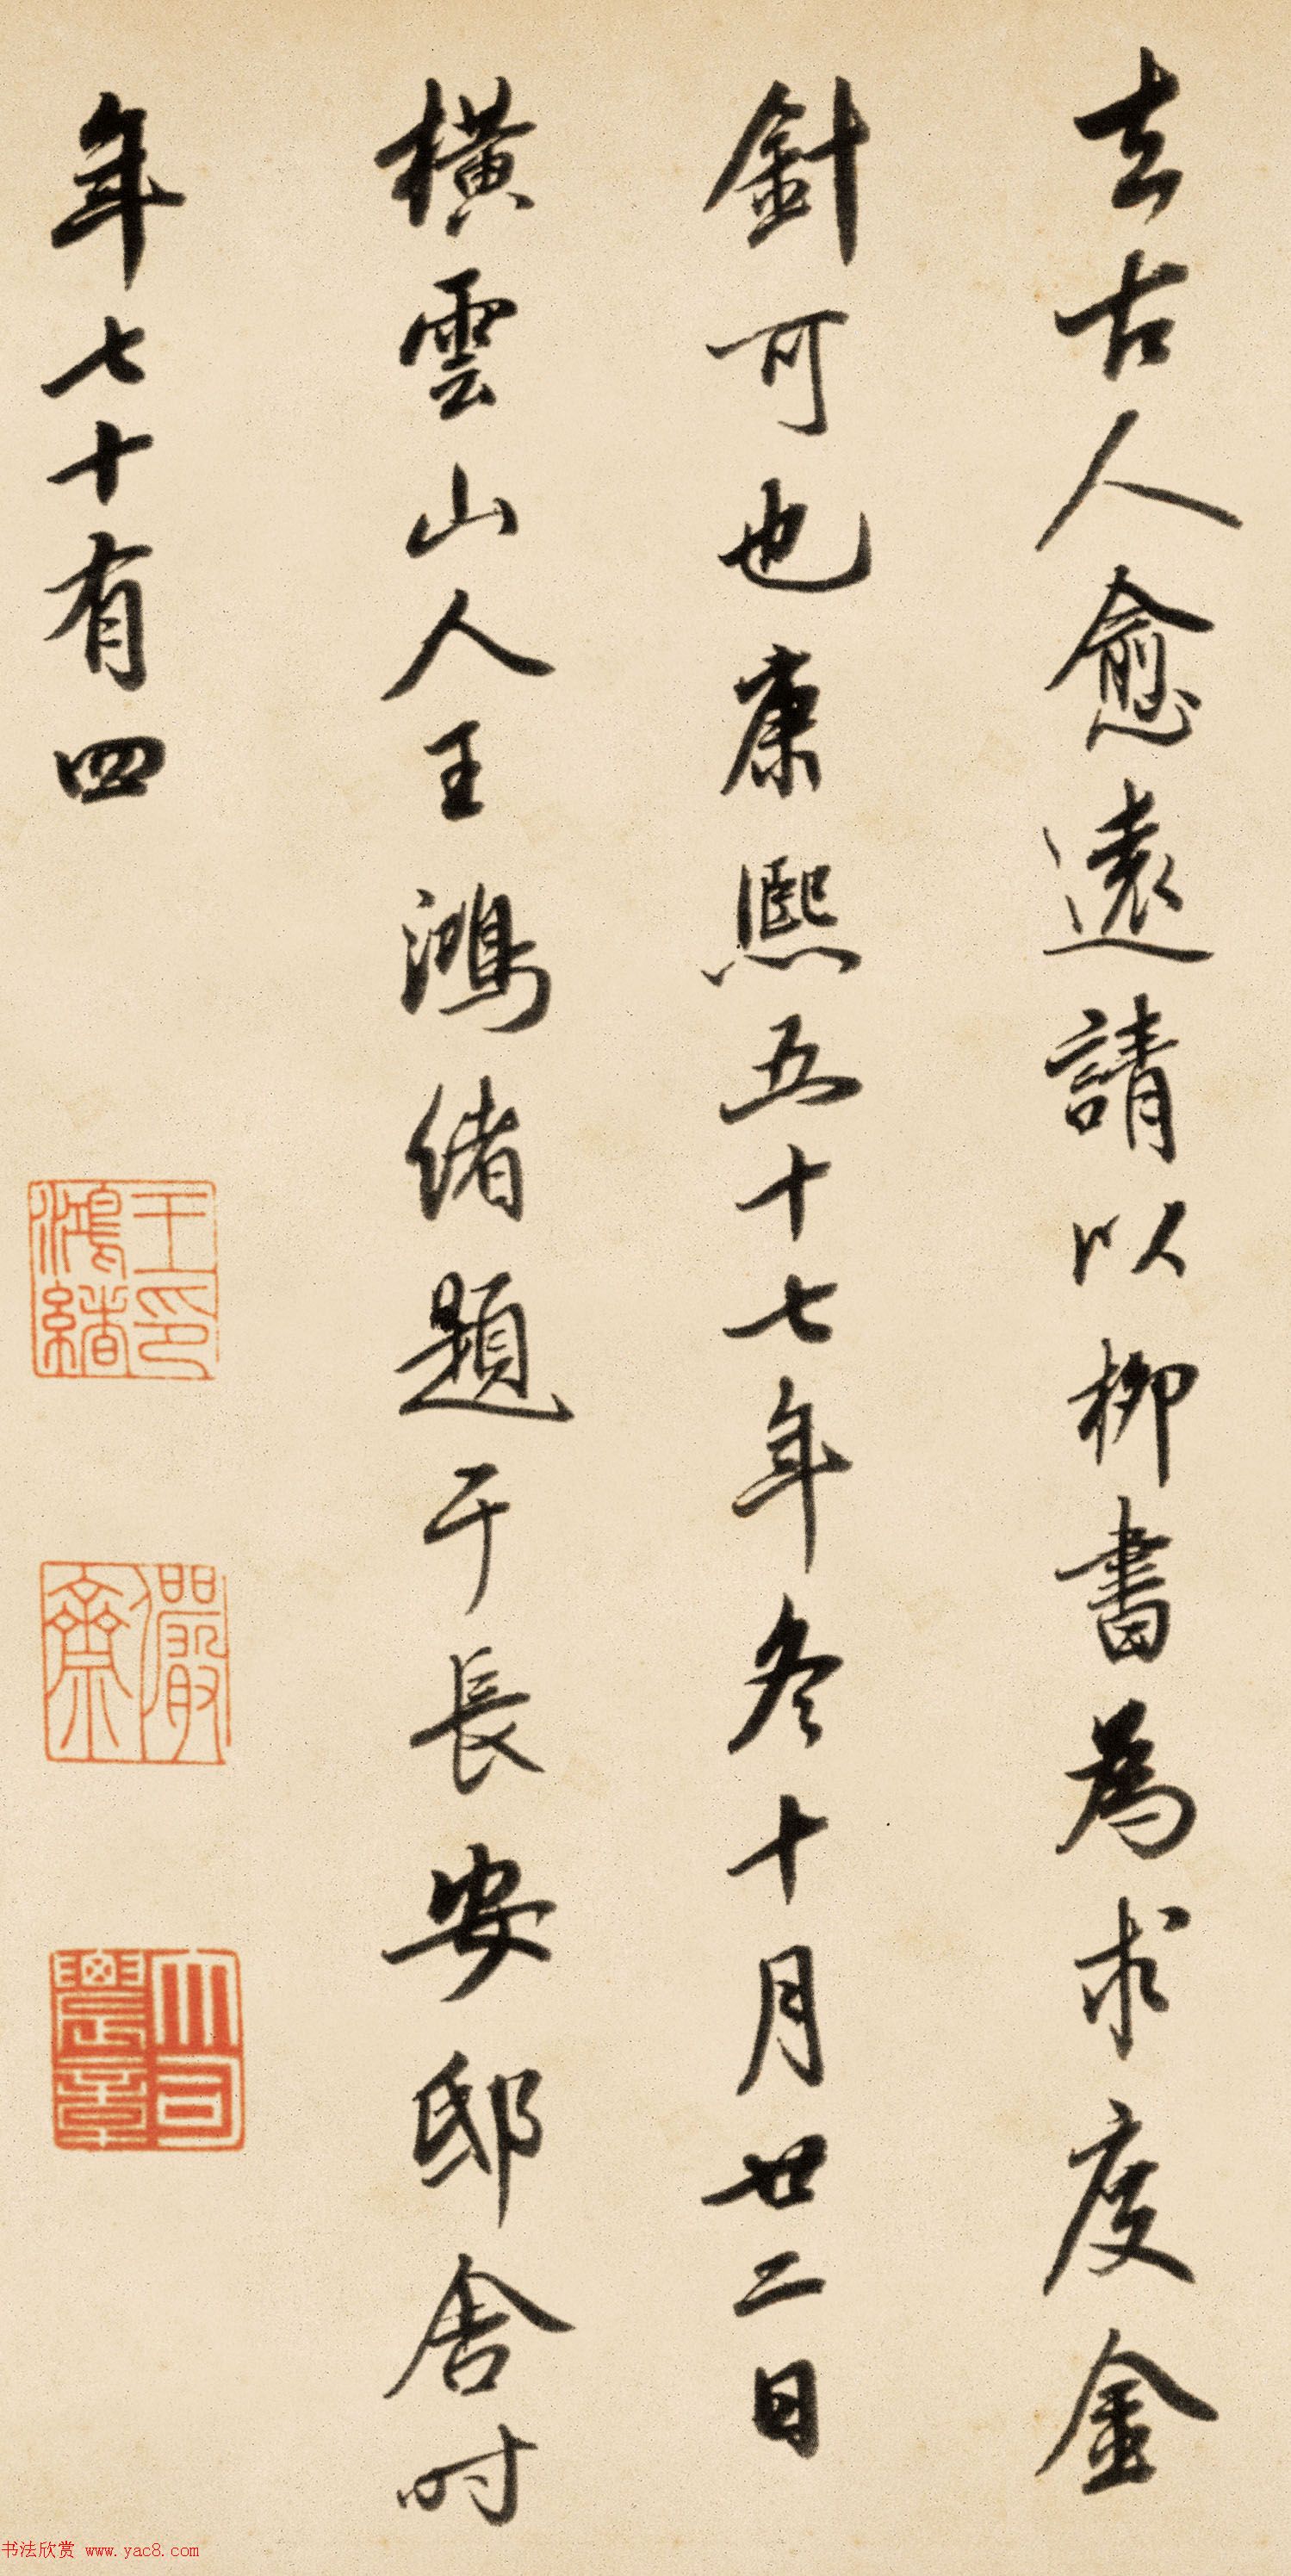 去古人愈遠請以柳書為求度金
針可也康熙五十七年冬十月廿二日
橫雲山人王鴻緒題于長安邸舍时
年七十有四
王印
鴻緒
儼
齋
大司
農章
书法欣赏 www.yac8.com